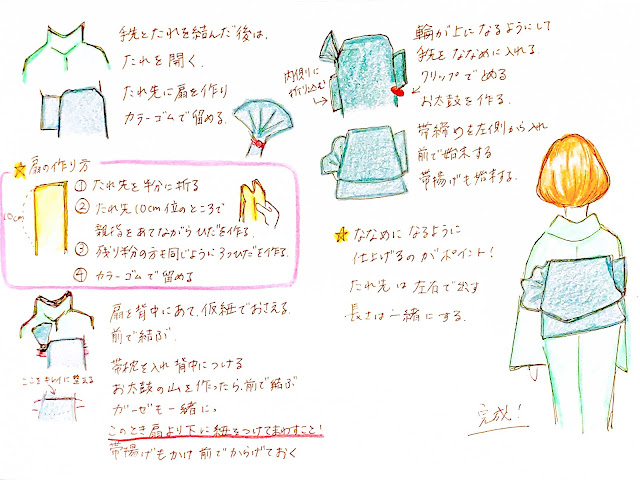 手先とたれを結んだ後は、
たれを開く。
たれ先に扇を作り
カラーゴムで留める。
★扇の作り方
10cm
① たれ先を半分に折る
② たれ先10cm位のところで
親指をあてながらひだを作る。
③ 残り半分の方も同じように3つひだを作る。
④ カラーゴムで留める
扇を背中にあて、仮紐でおさえる。
前で結ぶ。
ここをキレイに整える
帯枕を入れ背中につける
お太鼓の山を作ったら、前で結ぶ
ガーゼも一緒に。
このとき扇より下に紐をつけてまわすこと!
帯揚げもかけ前でからげておく
内側に
折り込む
輪が上になるようにして
手先をななめに入れる
クリップでとめる
お太鼓を作る。
帯締めを左側から入れ
前で始末する
帯揚げも始末する。
★ななめになるように
仕上げるのがポイント!
たれ先は左右で出す
長さは一緒にする。
完成!